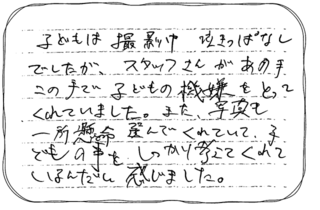 子どもは 撮影中 泣きっぱなし
でしたが、スタッフさんがあの手
この手で 子どもの機嫌をとって
くれていました。また、写真も
一所懸命 選んでくれていて、子
どもの事を しっかり考えてくれて
いるんだと 感じました。